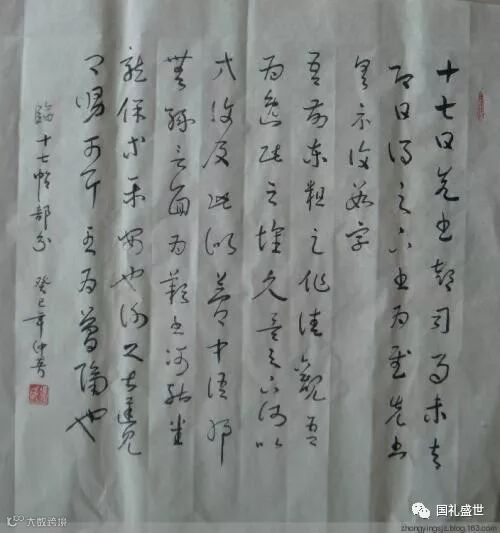 十七日先書郗司馬未去
即日得足下書為慰先書
具示復數字
吾前東粗足作佳觀吾
為逸民之懷久矣足下何以
方復及此似夢中語耶
無緣言面為歎書何能悉
龍保等平安也謝之甚遲見
卿舅可耳至為簡隔也
臨十七帖部分 癸巳年仲
大数跨境
国礼盛世
zhongyingsjz.blog.163.com